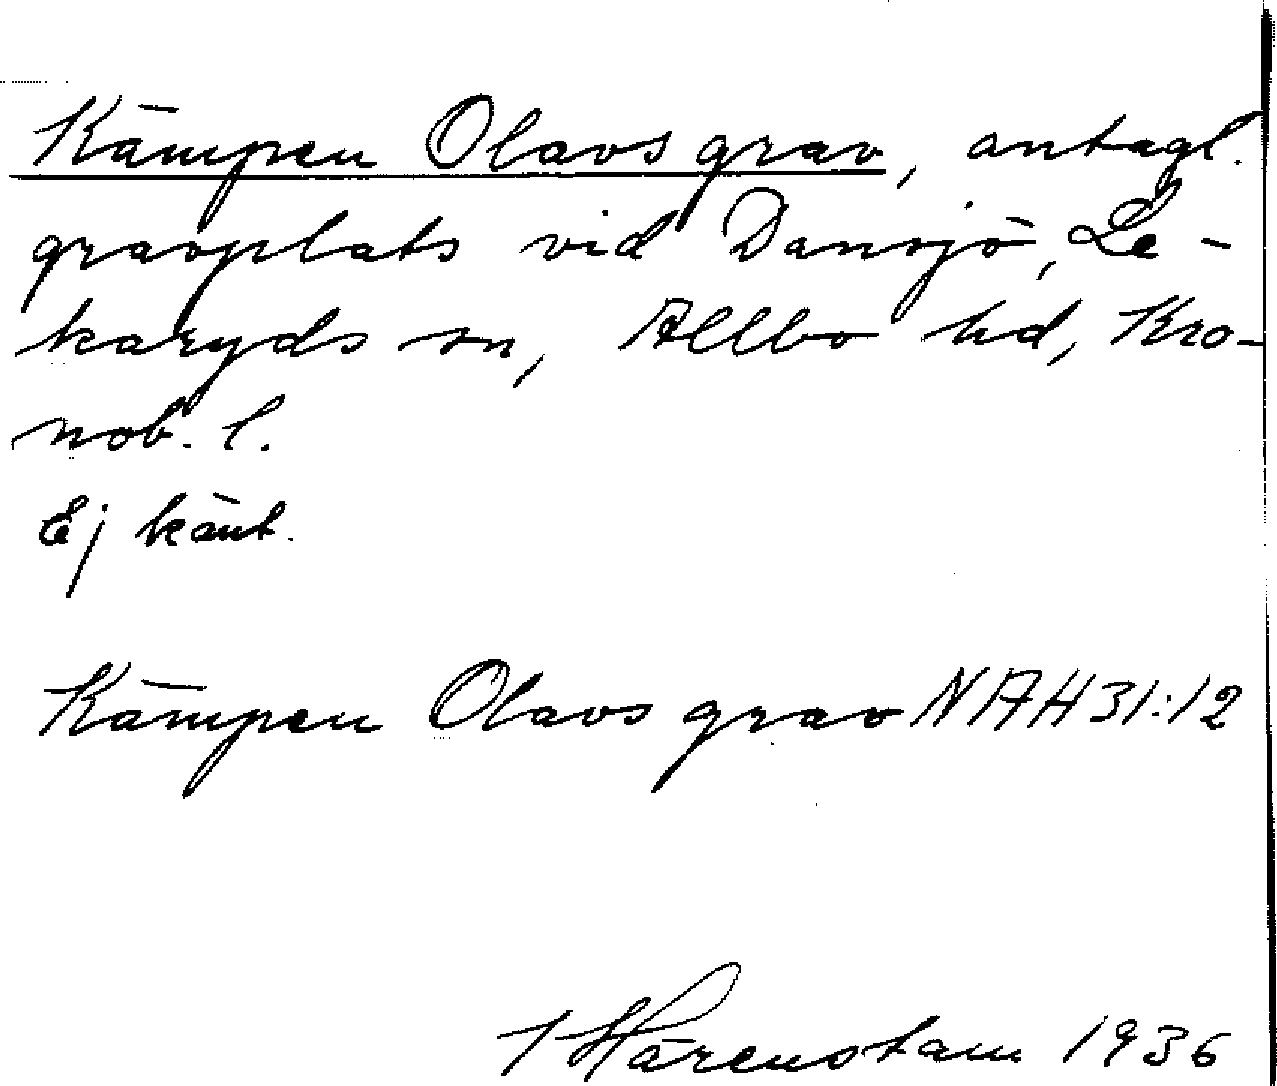 Kämpen Olavs grav, antagl.
gravplats vid Dansjö, Le-
karyds sn, Allbo hd, Kro-
nob. l.
Ej känt.
Kämpen Olavs grav NAH 31:12
Härenstam 1936